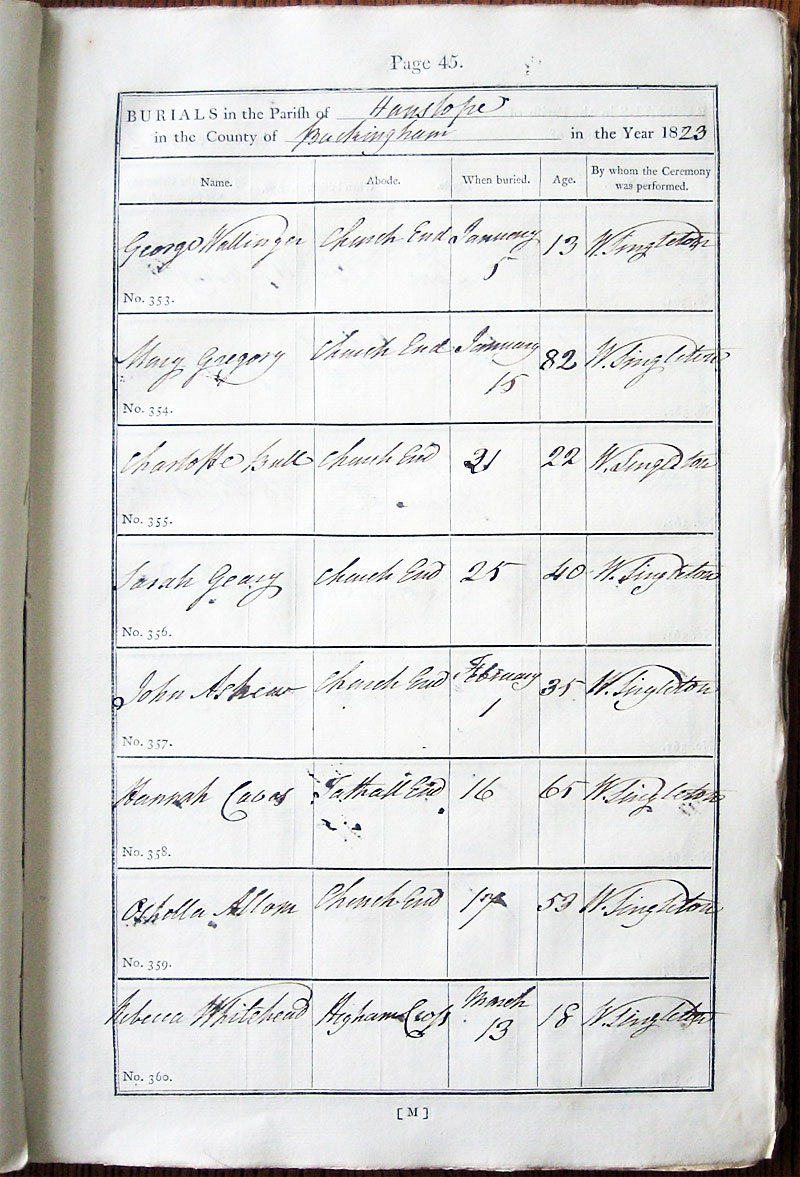 Page 45.
BURIALS in the Parish of Hanslope
in the County of Buckingham in the Year 1823
Name. Abode. When buried. Age. By whom the Ceremony was performed.
George Wallinger Church End January 5 13 W. Singleton
No. 353.
Mary Gregory Church End January 15 82 W. Singleton
No. 354.
Charlotte Bull Church End 21 22 W. Singleton
No. 355.
Sarah Geary Church End 25 40 W. Singleton
No. 356.
John Askew Church End February 1 35 W. Singleton
No. 357.
Hannah Tathall End 16 65 W. Singleton
No. 358.
Church End 17 53 W. Singleton
No. 359.
Rebecca Whitehead Higham Cross March 13 18 W. Singleton
No. 360.
[M]